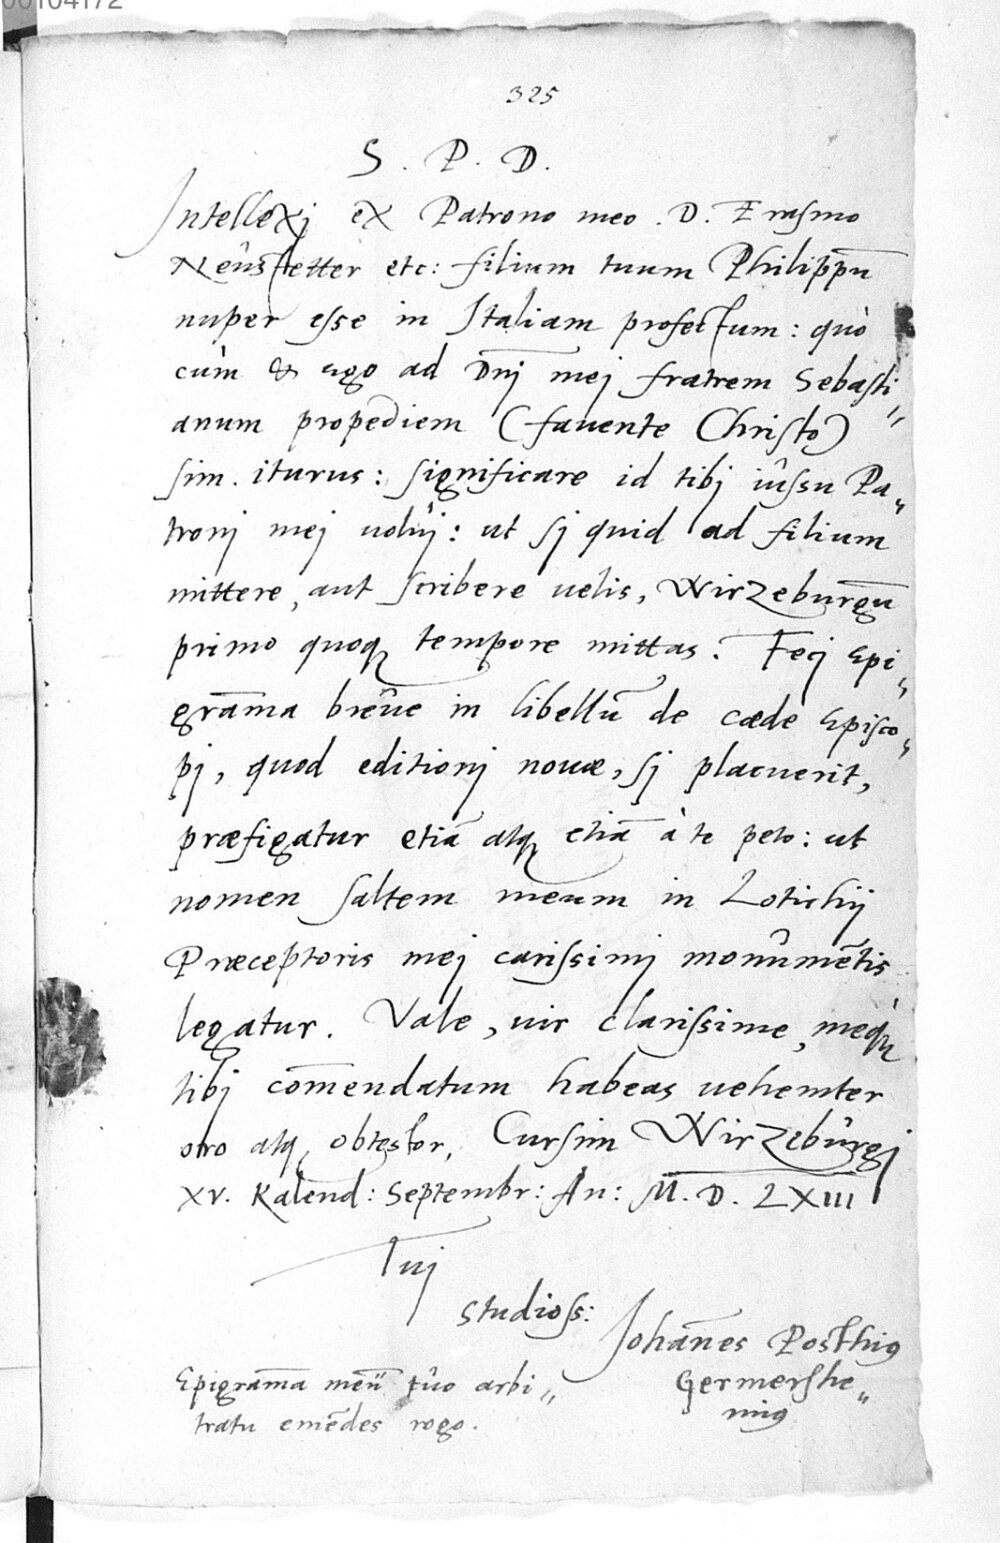 00104172
325
S. P. D.
Intellexj ex Patrono meo .D. Erasmo
Neûstetter etc: filium tuum Philippū
nuper esse in Italiam profectum: quò
cùm & ego ad Dn̄j mej fratrem Sebasti„
anum propediem (fauente Christo)
sim. iturus: significare id tibj iûssu Pa„
tronj mej uoluj: ut sj quid ad filium
mittere, aut scribere uelis, Wirzeburgū
primo quoq tempore mittas. Fecj Epi„
gram̄a breûe in libellū de cæde Episco„
pj, quod editionj nouæ, sj placuerit,
præfigatur etiā atq etiā à te peto: ut
nomen saltem meum in Lotichij
Præceptoris mej carissimj monûmētis
legatur. Vale, uir clarissime, meq́
tibj com̄endatum habeas uehemter
oro atq, obtestor, Cursim Wirzebûrgj
XV. Kalend: Septembr: An: M. D. LXIII
Tuj
studioss:
Johan̄es Posthiꝰ
Epigram̄a meū tûo arbi„ Germershe„
tratu emēdes rogo. miꝰ